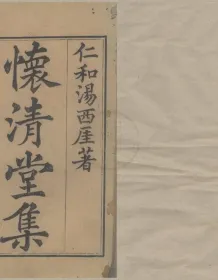 仁和湯西厓著
懷清堂集